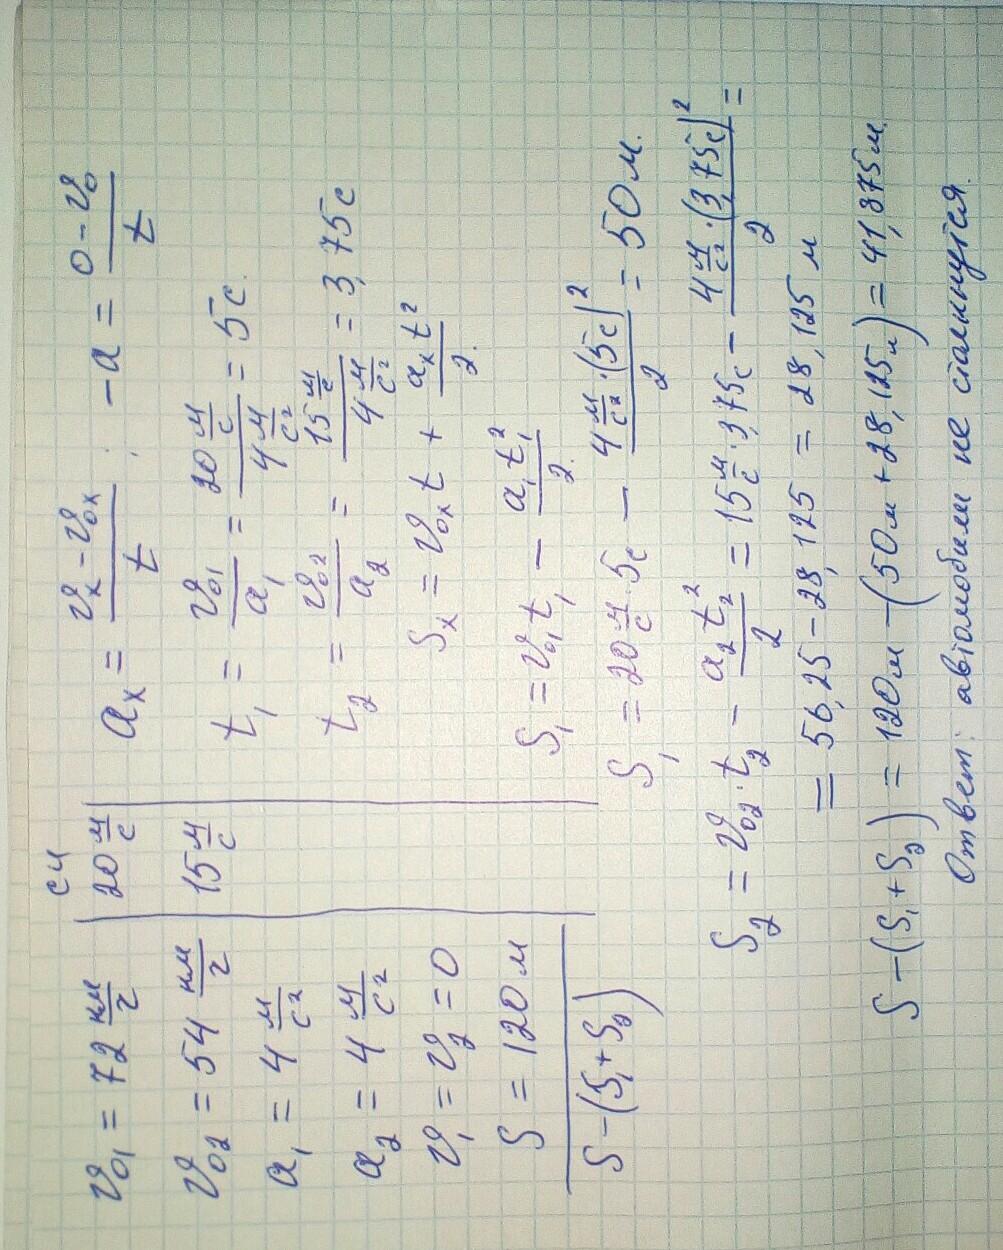 СИ
v₀₁ = 72 км/г | 20 м/с
v₀₂ = 54 км/г | 15 м/с
a₁ = 4 м/с²
a₂ = 4 м/с²
v₁ = v₂ = 0
S = 120 м
S − (S₁ + S₂)
aₓ = (vₓ − v₀ₓ)/t ; −a = (0 − v₀)/t
t₁ = v₀₁/a₁ = (20 м/с)/(4 м/с²) = 5 с.
t₂ = v₀₂/a₂ = (15 м/с)/(4 м/с²) = 3,75 с
Sₓ = v₀ₓt + aₓt²/2.
S₁ = v₀₁t₁ − a₁t₁²/2.
S₁ = 20 м/с · 5с − (4 м/с² · (5с)²)/2 = 50 м.
S₂ = v₀₂ · t₂ − a₂t₂²/2 = 15 м/с · 3,75с − (4 м/с² · (3,75с)²)/2 =
= 56,25 − 28,125 = 28,125 м
S − (S₁ + S₂) = 120м − (50м + 28,125м) = 41,875м.
Ответ: автомобили не столкнутся.